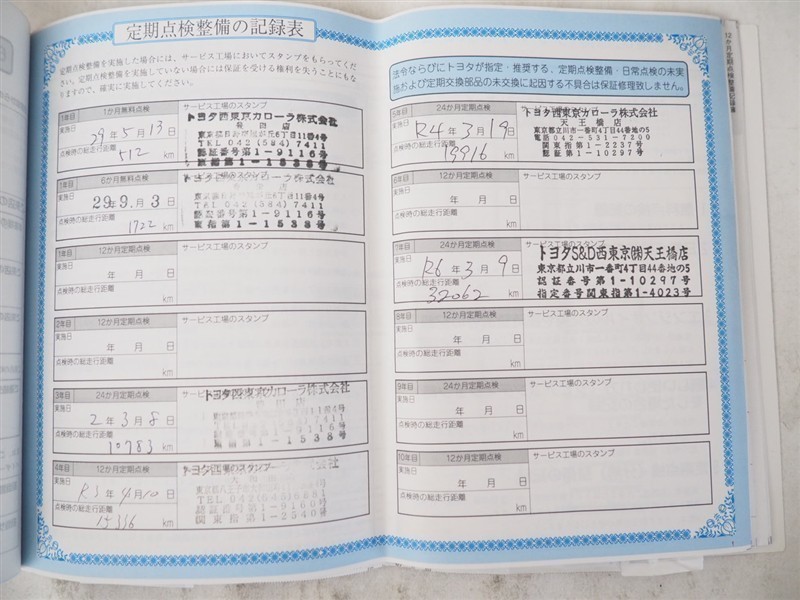 定期点検整備の記録表
定期点検整備を実施した場合には、サービス工場においてスタンプをもらってくだ
さい。定期点検整備を実施していない場合には保証を受ける権利を失うことにもな
りますので、確実に実施してください。
1年目 1か月無料点検 サービス工場のスタンプ
実施日 29年5月13日
点検時の総走行距離 512 km
トヨタ西東京カローラ株式会社
TEL 042(584)7411
認証番号第1-9116号
指第1-1538号
1年目 6か月無料点検 サービス工場のスタンプ
実施日 29年9月3日
点検時の総走行距離 1722 km
トヨタ西東京カローラ株式会社
TEL 042(584)7411
認証番号第1-9116号
関東指第1-1538号
1年目 12か月定期点検 サービス工場のスタンプ
実施日 年 月 日
点検時の総走行距離 km
2年目 12か月定期点検 サービス工場のスタンプ
実施日 年 月 日
点検時の総走行距離 km
3年目 24か月定期点検 サービス工場のスタンプ
実施日 2年3月8日
点検時の総走行距離 10783 km
トヨタ西東京カローラ株式会社
第1-1538号
4年目 12か月定期点検 サービス工場のスタンプ
実施日 R.3年4月10日
点検時の総走行距離 15336 km
認証番号第1-9160号
関東指第1-2540号
法令ならびにトヨタが指定・推奨する、定期点検整備・日常点検の未実
施および定期交換部品の未交換に起因する不具合は保証修理致しません。
5年目 24か月定期点検 サービス工場のスタンプ
実施日 R4年3月19日
点検時の総走行距離 19916 km
トヨタ西東京カローラ株式会社
天王橋店
東京都立川市一番町4丁目44番地の5
電話042-531-7200
関東指第1-2237号
認証第1-10297号
6年目 12か月定期点検 サービス工場のスタンプ
実施日 年 月 日
点検時の総走行距離 km
7年目 24か月定期点検 サービス工場のスタンプ
実施日 R6年3月9日
点検時の総走行距離 32062 km
トヨタS&D西東京㈱天王橋店
東京都立川市一番町4丁目44番地の5
認証番号第1-10297号
指定番号関東指第1-4023号
8年目 12か月定期点検 サービス工場のスタンプ
実施日 年 月 日
点検時の総走行距離 km
9年目 24か月定期点検 サービス工場のスタンプ
実施日 年 月 日
点検時の総走行距離 km
10年目 12か月定期点検 サービス工場のスタンプ
実施日 年 月 日
点検時の総走行距離 km
12か月定期点検整備記録簿